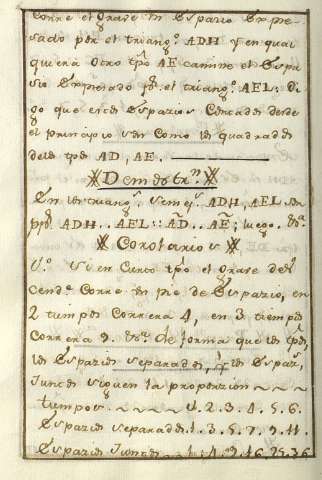 Corre el grave un Espazio Expre-
sado por el triang.º ADH y en qual
quiera otro tpõ AE camine el Espa
zio Expresado por el triang.º AEL: di
go que estos Espazios Contados desde
el principio son como los quadrados
de los tpõs AD, AE.
Demostr.n
En los triang.s semejs ADH, AEL son
ADH .. AEL :: AD .. AE; luego
Corolarios
1.º Si en cierto tpõ el grave
cende Corre un pie de Espazio, en
2 tiempos Correra 4, en 3 tiempos
Correra 9. de forma que los tpõs,
los Espazios separados, y los Espazs,
Juntos siguen la proporzion ~ ~ ~
tiempos ~ ~ ~ ~ 1. 2. 3. 4. 5. 6.
Espazios separados. 1. 3. 5. 7. 9. 11.
Espazios Juntos ~ ~ 1. 4. 9. 16. 25. 36.